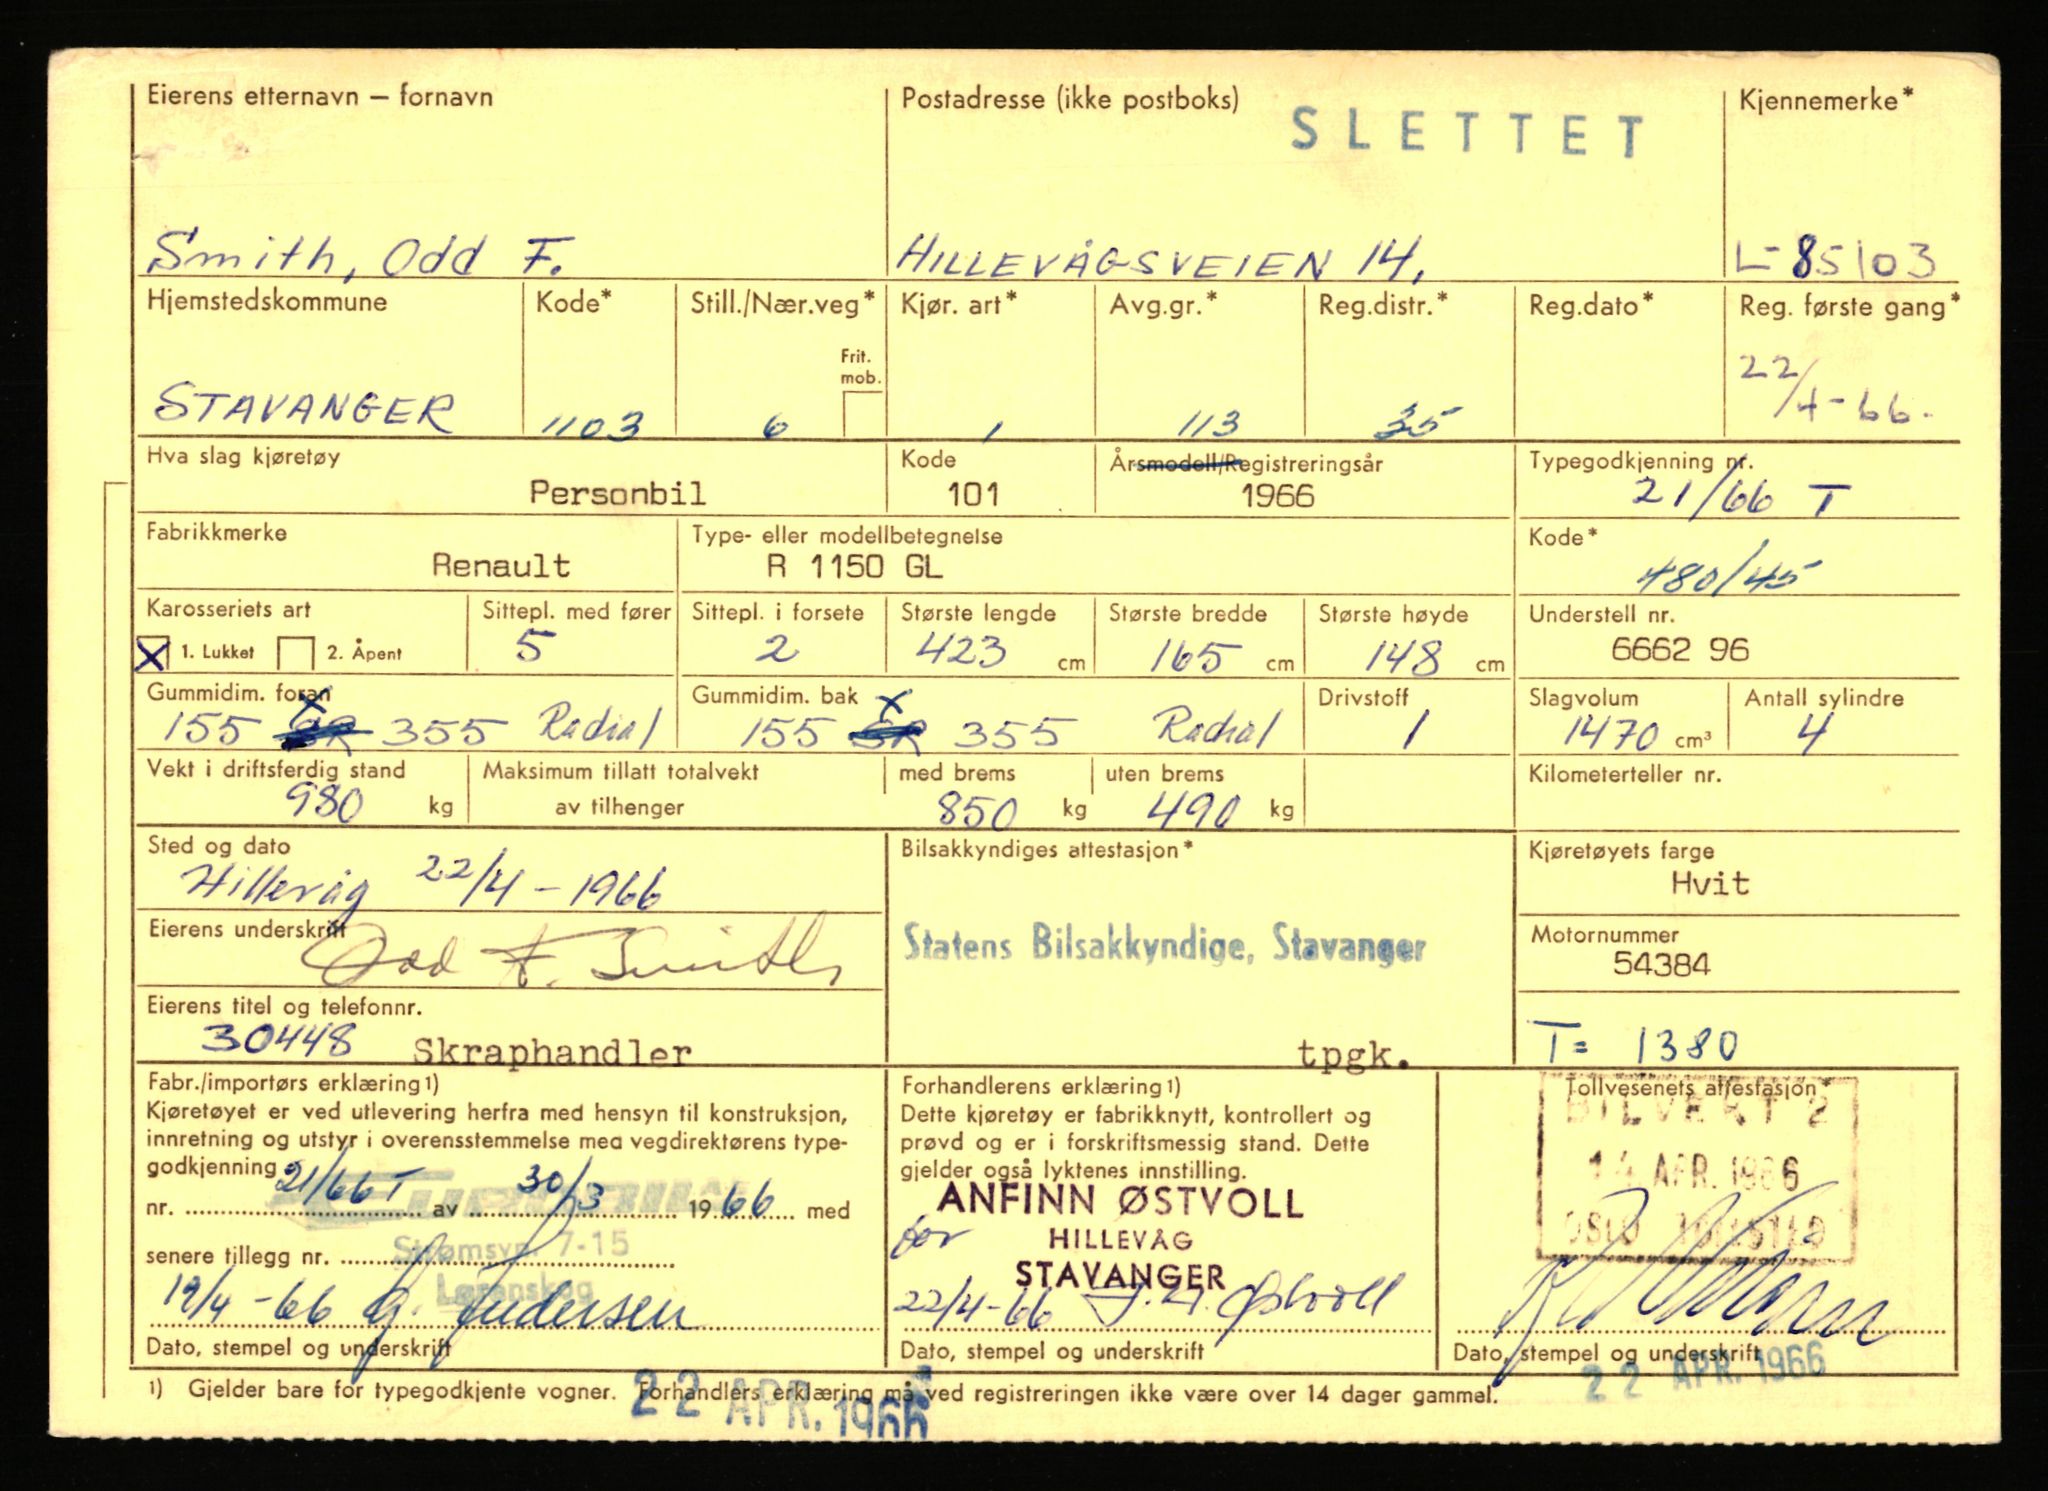 Eierens etternavn – fornavn Postadresse (ikke postboks) Kjennemerke*
SLETTET
Smith, Odd F. HILLEVÅGSVEIEN 14, L-85103
Hjemstedskommune Kode* Still./Nær.veg* Kjør. art* Avg.gr.* Reg.distr.* Reg.dato* Reg. første gang*
Frit. mob.
STAVANGER 1103 6 1 113 35 22/4-66.
Hva slag kjøretøy Kode Årsmodell/Registreringsår Typegodkjenning nr.
Personbil 101 1966 21/66 T
Fabrikkmerke Type- eller modellbetegnelse Kode*
Renault R 1150 GL 480/45
Karosseriets art Sittepl. med fører Sittepl. i forsete Største lengde Største bredde Største høyde Understell nr.
X 1. Lukket 2. Åpent 5 2 423 cm 165 cm 148 cm 6662 96
Gummidim. foran Gummidim. bak Drivstoff Slagvolum Antall sylindre
155 x 355 Radial 155 x 355 Radial 1 1470 cm³ 4
Vekt i driftsferdig stand Maksimum tillatt totalvekt med brems uten brems Kilometerteller nr.
980 kg av tilhenger 850 kg 490 kg
Sted og dato Bilsakkyndiges attestasjon* Kjøretøyets farge
Hillevåg 22/4-1966 Hvit
Eierens underskrift Motornummer
Odd F. Smith Statens Bilsakkyndige, Stavanger 54384
Eierens titel og telefonnr.
30448 Skraphandler tpgk. T= 1380
Fabr./importørs erklæring 1) Forhandlerens erklæring 1) Tollvesenets attestasjon*
Kjøretøyet er ved utlevering herfra med hensyn til konstruksjon, Dette kjøretøy er fabrikknytt, kontrollert og BILVERT 2
innretning og utstyr i overensstemmelse med vegdirektørens type- prøvd og er i forskriftsmessig stand. Dette
godkjenning gjelder også lyktenes innstilling. 14 APR. 1966
nr. 21/66T av 30/3 1966 med ANFINN ØSTVOLL
Strømsvn. 7-15 for HILLEVÅG OSLO TOLLSTED
senere tillegg nr.
Lørenskog STAVANGER
19/4-66 G. Andersen 22/4-66 Østvoll
Dato, stempel og underskrift Dato, stempel og underskrift Dato, stempel og underskrift
22 APR. 1966
1) Gjelder bare for typegodkjente vogner. Forhandlers erklæring må ved registreringen ikke være over 14 dager gammel.
22 APR. 1966